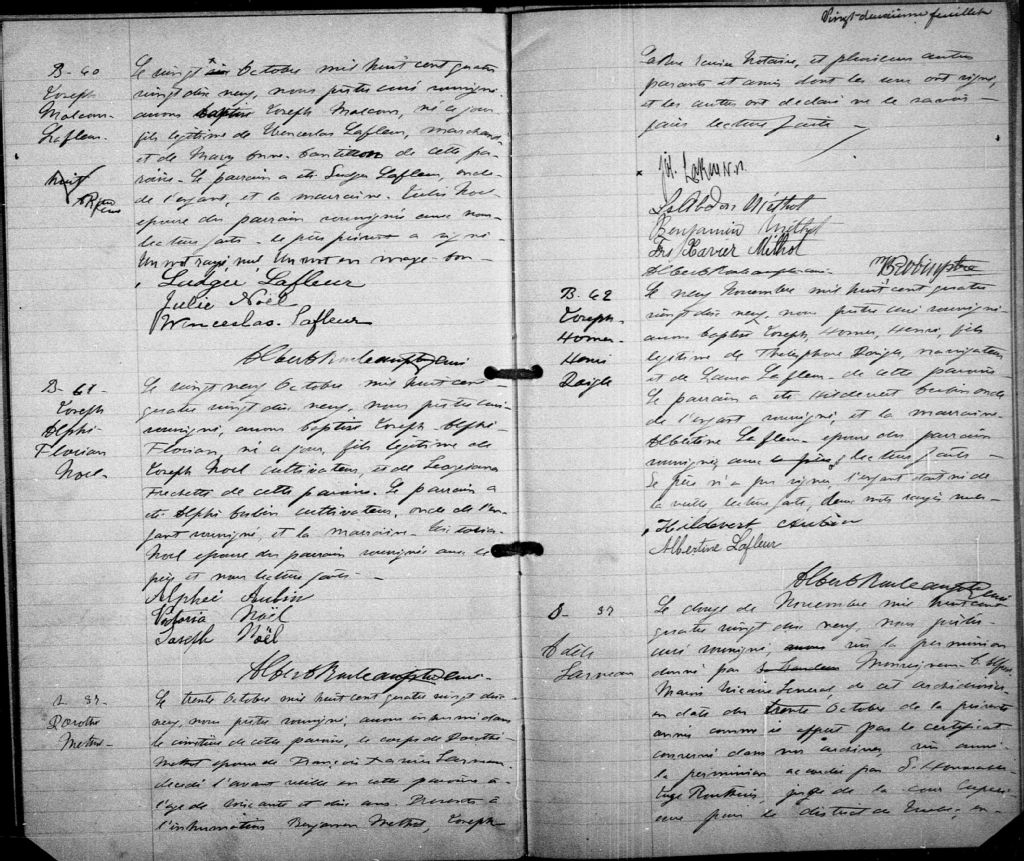 Vingt-deuxième feuillet
B - 60
Joseph
Malcom-
Lafleur.
huit
Le vingt six Octobre mil huit cent quatre
vingt dix neuf, nous prêtre curé soussigné
avons baptisé Joseph Malcom, né ce jour
fils légitime de Wenceslas Lafleur, marchand
et de Mary Anne de cette pa-
roisse. Le parrain a été Ludger Lafleur, oncle
de l'enfant, et la marraine Julie Noël
épouse du parrain soussignés avec nous
lecture faite. le père présent a signé.
Un mot rayé nul Un mot en marge bon-
Ludgié Lafleur
Julie Noël
Wenceslas Lafleur
Albert Rouleau ptre curé
B - 61
Joseph
Alphé
Florian
Noël-
Le vingt neuf Octobre mil huit cent
quatre vingt dix neuf, nous prêtre curé
soussigné, avons baptisé Joseph Alphé-
Florian, né ce jour, fils légitime de
Joseph Noël cultivateur, et de Georgiana
Frechette de cette paroisse. Le parrain a
été Alphé Aubin cultivateur, oncle de l'en-
fant soussigné, et la marraine Victoria
Noël épouse du parrain soussignés avec le
père et nous lecture faite. -
Alphéé Aubin
Victoria Noël
Joseph Noël
Albert Rouleau ptre curé
Dorothé
Methot-
Le trente Octobre mil huit cent quatre vingt dix
neuf, nous prêtre soussigné, avons inhumé dans
le cimetière de cette paroisse, le corps de Dorothé
Methot épouse de François Xavier Garneau
décédé l'avant veille en cette paroisse à
l'âge de soixante et dix ans. Présents à
l'inhumation Benjamin Methot, Joseph
Notaire, et plusieurs autres
parents et amis dont les uns ont signé
et les autres ont déclaré ne le savoir
faire lecture faite -
Ls Abdon Méthot
Benjamin Methot
Frs Xavier Méthot
Albert Rouleau ptre curé
B - 62
Joseph-
Homer-
Henri
Daigle
Le neuf Novembre mil huit cent quatre
vingt dix neuf, nous prêtre curé soussigné
avons baptisé Joseph, Homer, Henri, fils
légitime de Théléphore Daigle, navigateur
et de Laura Lafleur de cette paroisse
Le parrain a été Hildevert Aubin oncle
de l'enfant soussigné, et la marraine
Albertine Lafleur épouse du parrain
soussignés, avec le père, lecture faite -
Le père n'a pu signer, l'enfant était né de
la veille lecture faite, deux mots rayés nuls-
Hildevert Aubin
Albertine Lafleur
Albert Rouleau ptre curé
Adèle
Garneau
Le douze de Novembre mil huit cent
quatre vingt dix neuf nous prêtre
curé soussigné, avons vu la permission
donné par Monseigneur
Marois Vicaire Général, de cet archidiocèse
en date du trente Octobre de la présente
année comme il appert par le certificat
conservé dans nos archives, vu aussi
la permission accordée par l'Honorable
Juge Routhier, juge de la Cour Supé-
rieure pour le district de Québec, en